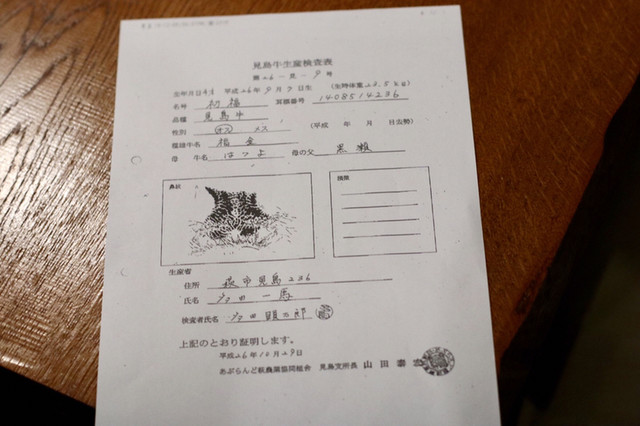 見島牛生産検査表
第26-見-9号
生年月日 平成26年9月9日生 (生時体重 23.5kg)
名号 初福 耳標番号 1408514236
品種 見島牛
性別 オス メス (平成 年 月 日去勢)
種雄牛名 福金
母 牛名 はつよ 母の父 黒瀬
鼻紋 損徴
生産者
住所 萩市見島236
氏名 戸田一馬
検査者氏名
上記のとおり証明します。
平成26年10月29日
あぶらんど萩農業協同組合 見島支所長 山田